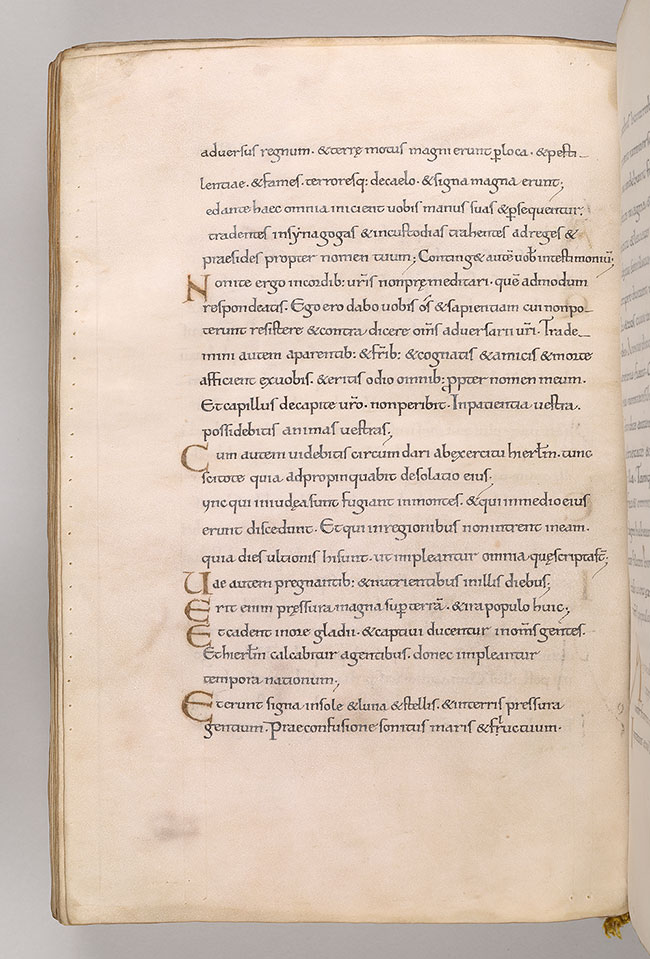 adversus regnum. & terrę motus magni erunt ꝑ loca. & pesti_
lentiae. & fames. terroresq: de caelo. & signa magna erunt;
ed ante haec omnia inicient uobis manus suas & ꝑsequentur.
tradentes in synagogas & in custodias trahentes ad reges &
praesides propter nomen tuum; Conting& aute uob in testimoniū;
Nonite ergo in cordib: uris non pręmeditari. quē admodum
respondeatis. Ego ero dabo uobis os & sapientiam cui non po
terunt resistere & contra dicere om̄s adversarii uri. Trade_
mini autem a parentib: & frib: & cognatis & amicis & morte
afficient ex uobis. & eritis odio omnib: propter nomen meum.
Et capillus de capite uro. non peribit. In patientia uestra.
possidebitis animas uestras;
Cum autem uidebitis circum dari ab exercitu hierlm. tunc
scitote quia adpropinquabit desolatio eius;
ync qui in iudea sunt fugiant in montes. & qui in medio eius
erunt discedunt. Et qui in regionibus non intrent in eam.
quia dies ultionis hi sunt. ut impleantur omnia quę scripta st;
Uae autem pregnantib: & nutrientibus in illis diebus;
Erit enim pręssura magna sup terrā. & ira populo huic;
Et cadent in ore gladii. & captivi ducentur in oms gentes.
Et hierlm calcabitur a gentibus. donec impleantur
tempora nationum;
Et erunt signa in sole & luna & stellis. & in terris pressura
gentium. Prae confusione sonitus maris & fructuum.